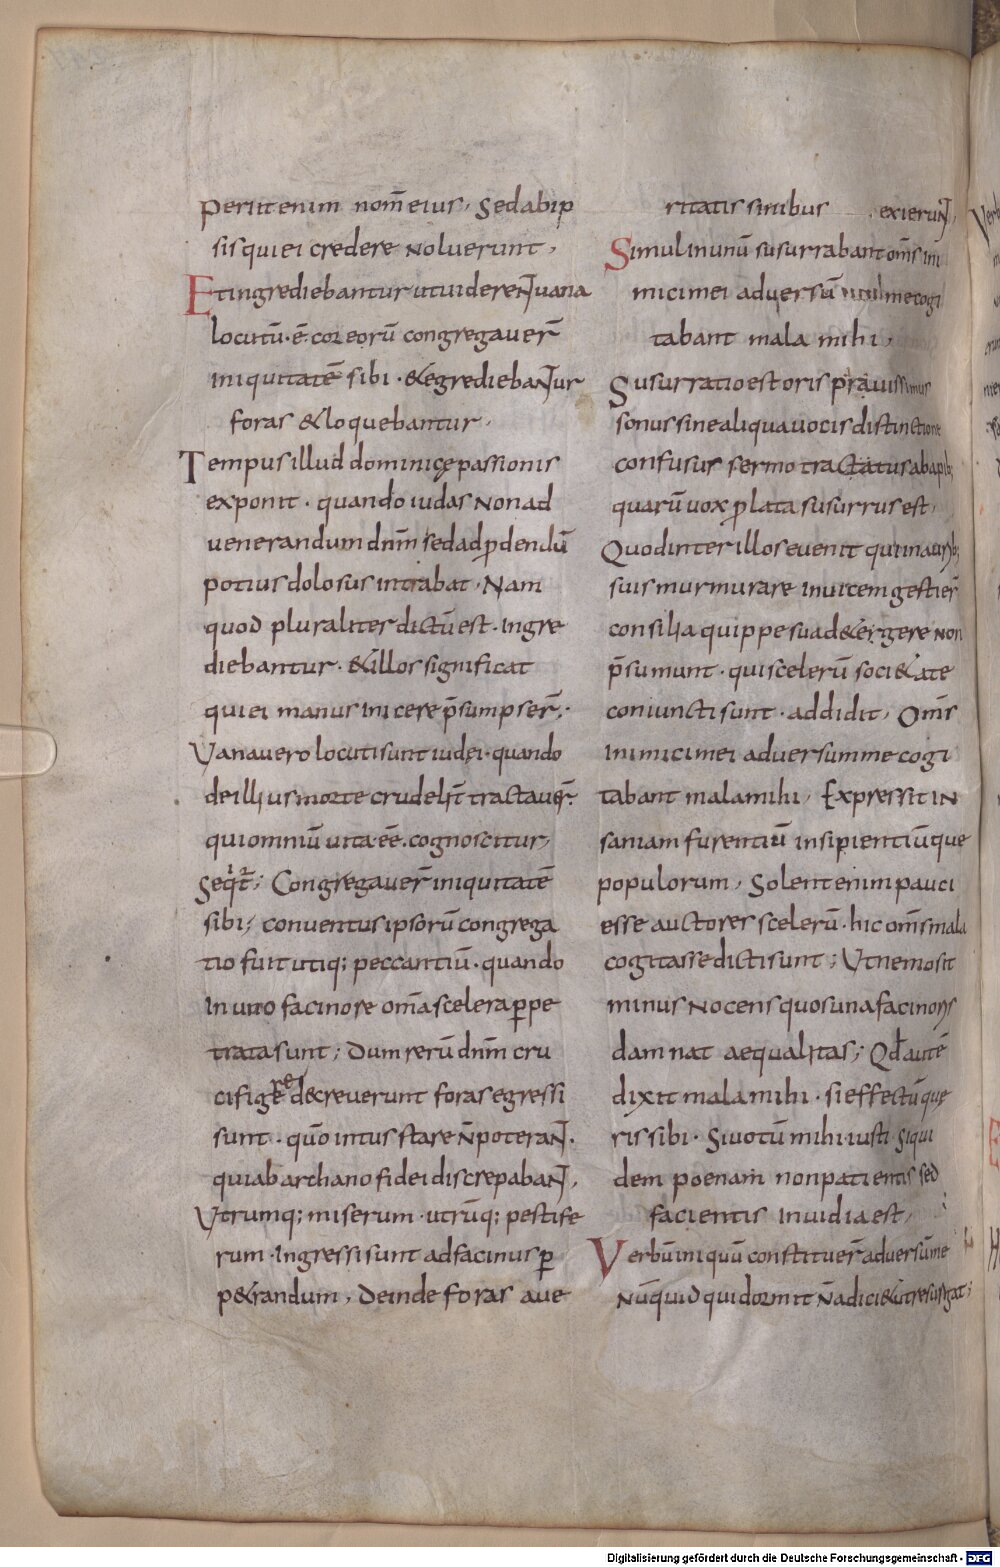 periit enim nom̄ eius, Sed ab ip
sis qui ei credere noluerunt,
Et ingrediebantur ut uiderent uana
locutū·ē·cor eorū congregauer̄
iniquitatē sibi·& egrediebantur
foras & loquebantur,
Tempus illud dominicę passionis
exponit·quando iudas non ad
uenerandum dnm̄ sed ad pdendū
potius dolosus intrabat, Nam
quod pluraliter dictū est·ingre
diebantur·& illos significat
qui ei manus inicere p̄sumpser̄;
Vana uero locuti sunt iudei·quando
de illius morte crudelit̄ tractauer̄·
qui omniū uita·eē·cognoscitur,
Seq̇t̄; Congregauer̄ iniquitatē
sibi; conuentus ipsorū congrega
tio fuit utiq; peccantiū·quando
in uno facinore om̄a scelera ꝑpe
trata sunt; dum rerū dnm̄ cru
cifigere decreuerunt foras egressi
sunt·quō intus stare n̄ poterant·
quia b archano fidei discrepabant,
Vtrumq; miserum·utrūq; pestife
rum·ingressi sunt ad facinus ꝑ
p&randum, deinde foras aue
ritatis sinibus exierunt,
Simul in unū susurrabant om̄s ini
mici mei aduersū me cogi
tabant mala mihi,
Susurratio est oris prauissimus
sonus sine aliqua uocis distinctione
confusus sermo tractatus ab apib;
quarū uox plata susurrus est,
Quod inter illos euenit qui in aurib;
suis murmurare inuicem gestier̄
consilia quippe sua d&ergere non
p̄sumunt·qui scelerū soci&ate
coniuncti sunt·addidit, Om̄s
inimici mei aduersum me cogi
tabant mala mihi, Expressit in
saniam furentiū insipientiūque
populorum, Solent enim pauci
esse auctores scelerū·hic om̄s mala
cogitasse dicti sunt; Vt nemo sit
minus nocens quos una facinoris
damnat aequalitas; Qđ autē
dixit mala mihi·si effectū quę
ris sibi·Si uotū mihi·iusti siqui
dem poenam non patientis sed
facientis inuidia est,
Verbū iniquū constituer̄ aduersū me
nūquid qui dormit n̄ adici& ut resurgat;
Digitalisierung gefördert durch die Deutsche Forschungsgemeinschaft - DFG